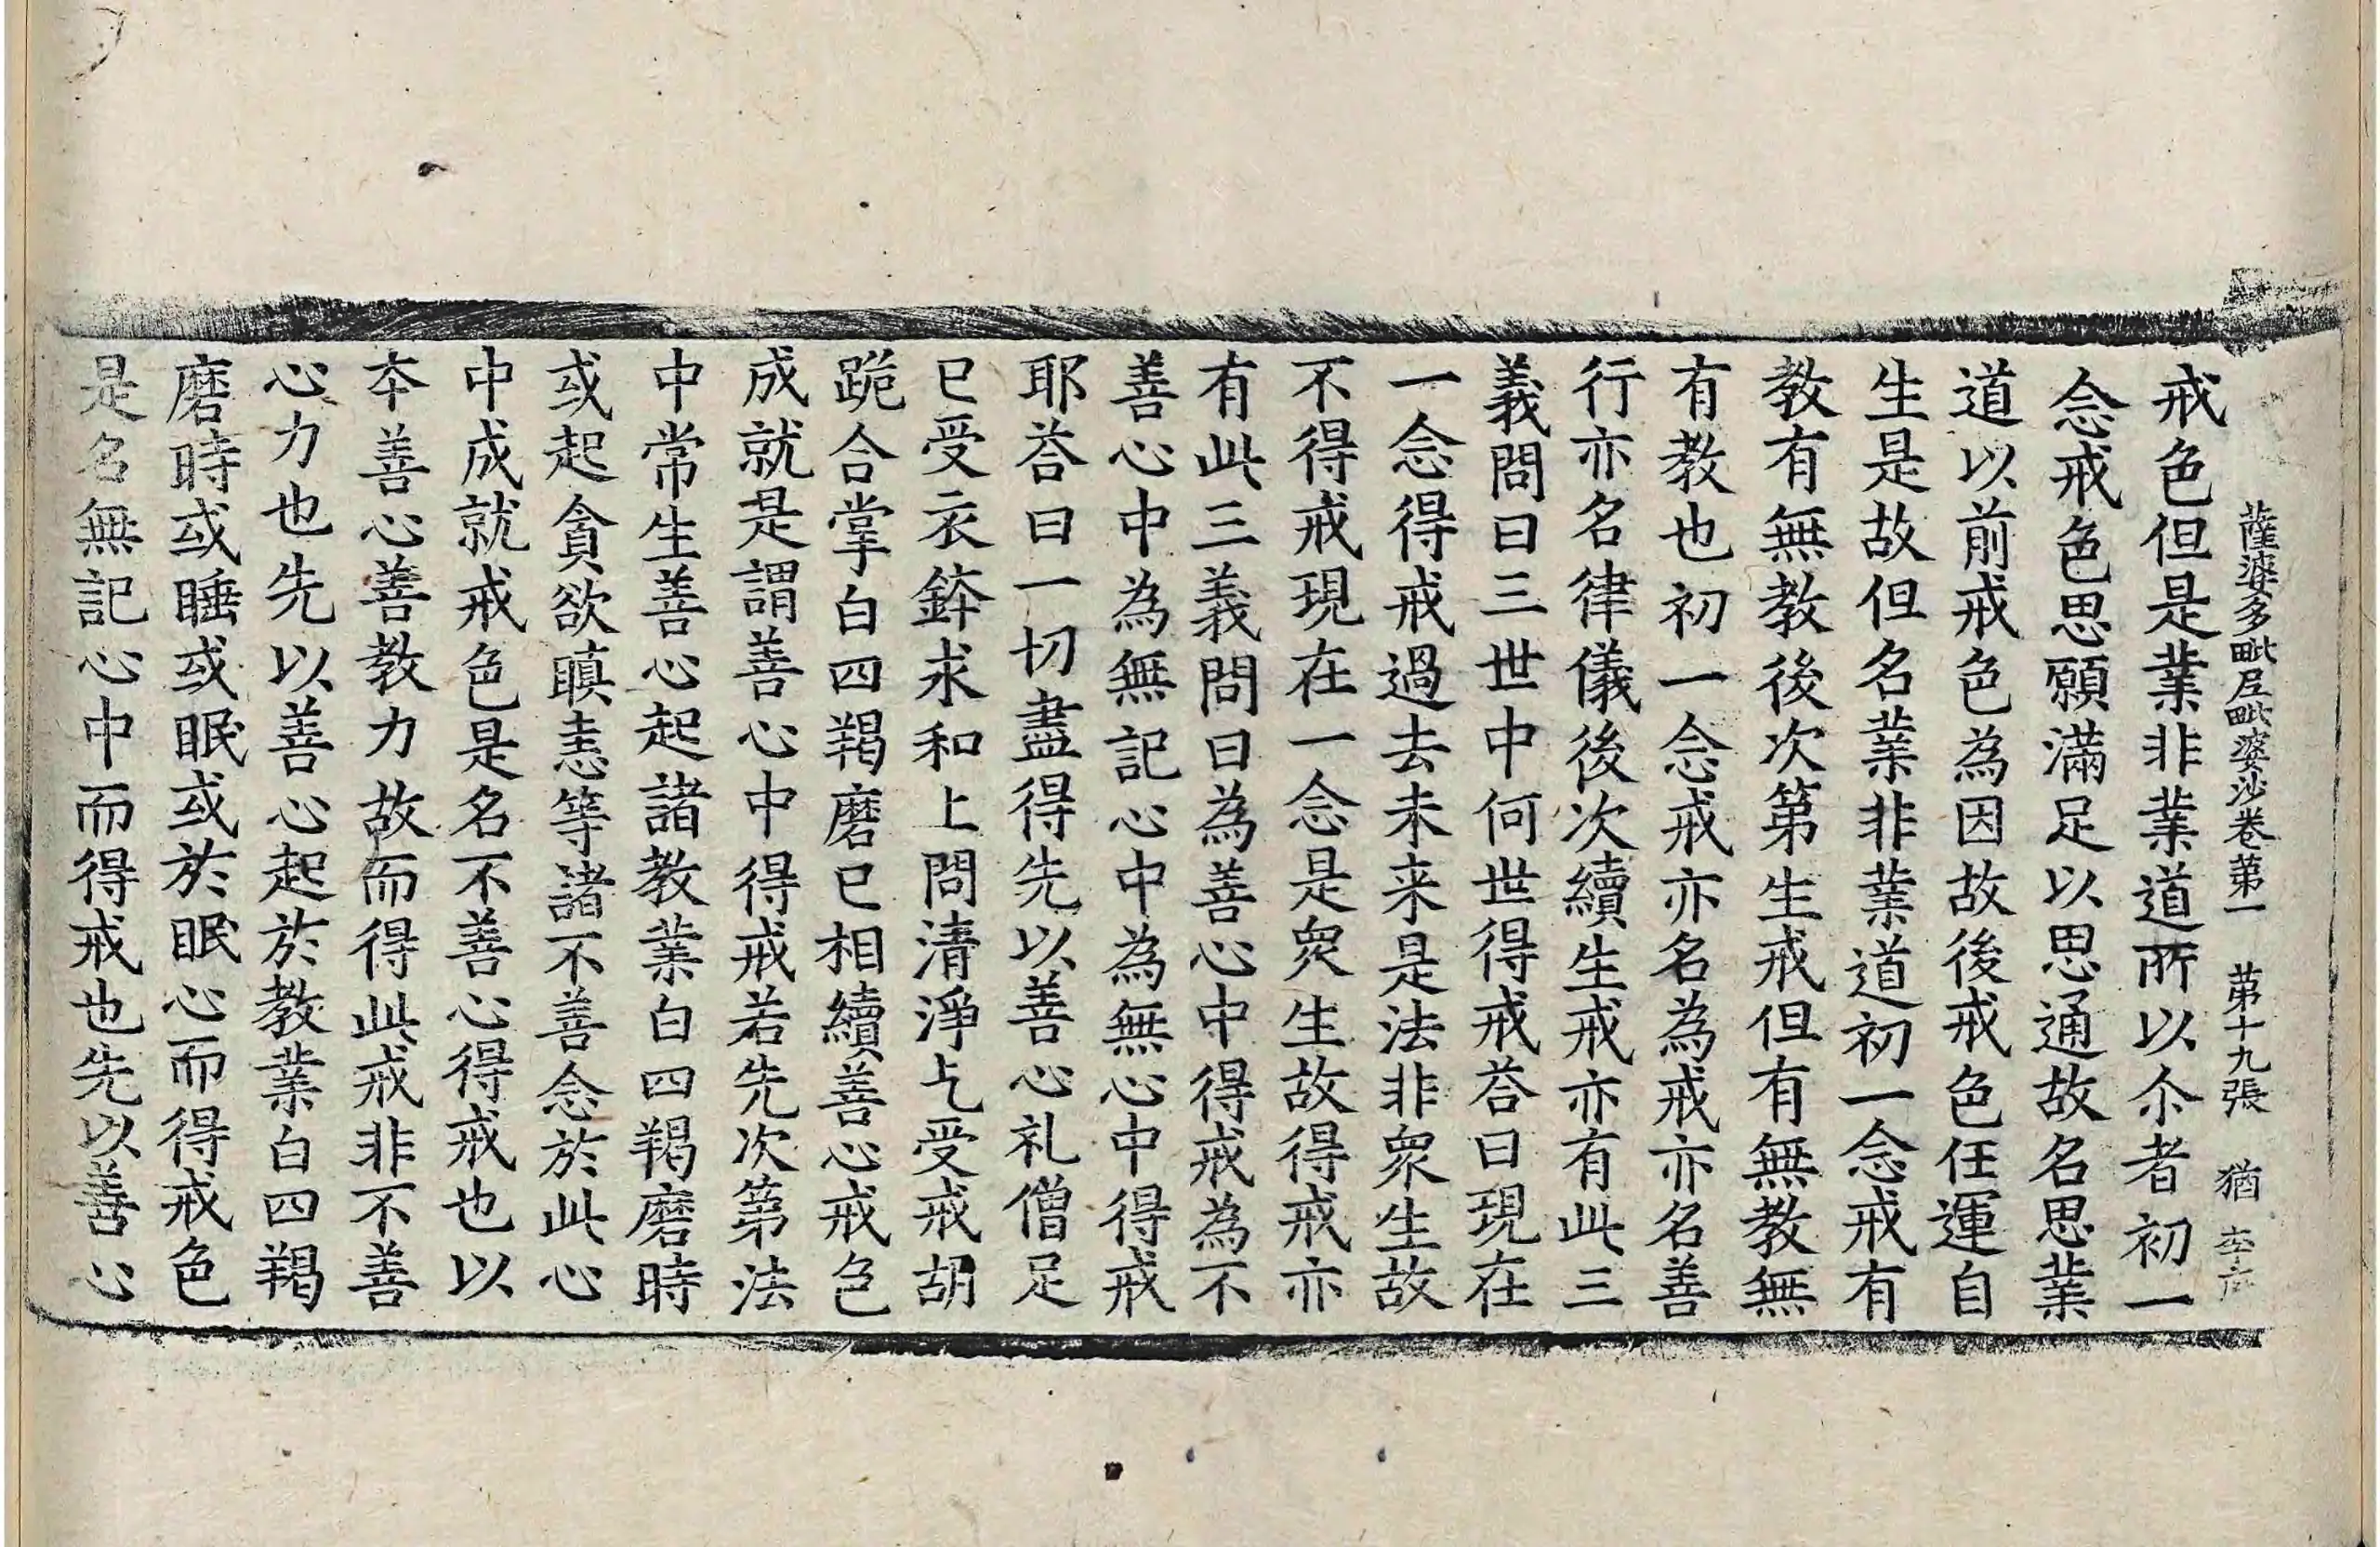 薩婆多毗尼毗婆沙卷第一 第十九張 猶
戒色但是業非業道所以尒者初一
念戒色思願滿足以思通故名思業
道以前戒色為因故後戒色任運自
生是故但名業非業道初一念戒有
教有無教後次第生戒但有無教無
有教也初一念戒亦名為戒亦名善
行亦名律儀後次續生戒亦有此三
義問曰三世中何世得戒荅曰現在
一念得戒過去未来是法非衆生故
不得戒現在一念是衆生故得戒亦
有此三義問曰為善心中得戒為不
善心中為無記心中為無心中得戒
耶荅曰一切盡得先以善心礼僧足
已受衣鉢求和上問清淨乞受戒胡
跪合掌白四羯磨已相續善心戒色
成就是謂善心中得戒若先次第法
中常生善心起諸教業白四羯磨時
或起貪欲瞋恚等諸不善念於此心
中成就戒色是名不善心得戒也以
夲善心善教力故而得此戒非不善
心力也先以善心起於教業白四羯
磨時或睡或眠或於眠心而得戒色
是名無記心中而得戒也先以善心